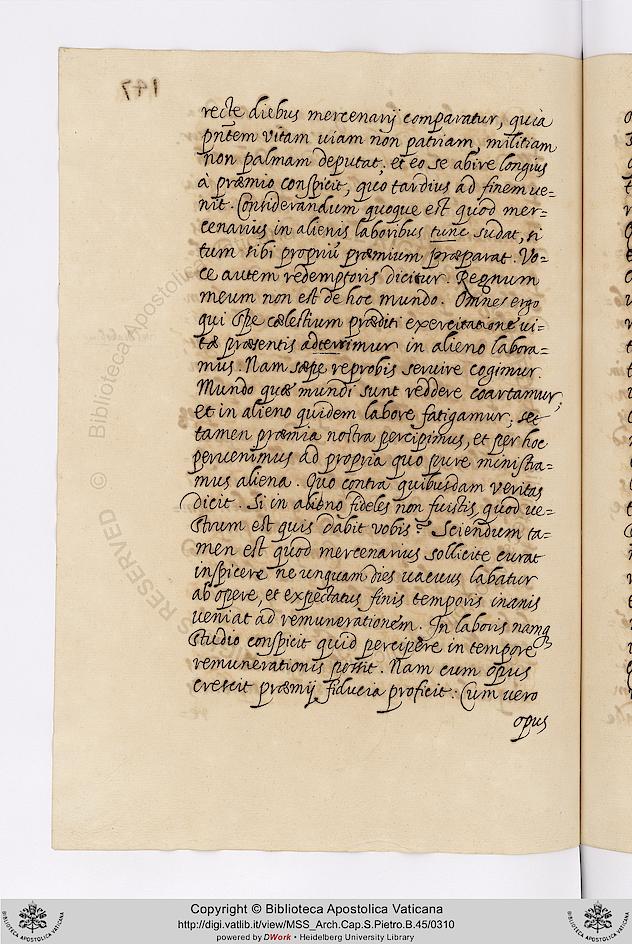 147
recte diebus mercenarij comparatur, quia
pñtem vitam uiam non patriam, militiam
non palmam deputat; et eo se abire longius
à præmio conspicit, quo tardius ad finem ue=
nit. Considerandum quoque est quod mer=
cenarius in alienis laboribus tunc sudat, si
tum sibi propriũ præmium præparat. Vo=
ce autem redemptoris dicitur. Regnum
meum non est de hoc mundo. Omnes ergo
qui spe cælestium præditi exercitatione ui=
tæ præsentis adterrimur in alieno labora=
mus. Nam sæpe reprobis seruire cogimur.
Mundo quæ mundi sunt reddere coartamur,
et in alieno quidem labore fatigamur, sed
tamen præmia nostra percipimus, et per hoc
peruenimus ad propria quo pure ministra=
mus aliena. Quo contra quibusdam veritas
dicit. Si in alieno fideles non fuistis, quod ue=
strum est quis dabit vobis? Sciendum ta=
men est quod mercenarius sollicite curat
inspicere ne unquam dies uacuus labatur
ab opere, et expectatus finis temporis inanis
ueniat ad remunerationem. In laboris namq
studio conspicit quid percipere in tempore
remunerationis possit. Nam cum opus
crescit præmij fiducia proficit: Cum uero
opus
© Biblioteca Apostolica
RESERVED
Copyright © Biblioteca Apostolica Vaticana
http://digi.vatlib.it/view/MSS_Arch.Cap.S.Pietro.B.45/0310
powered by DWork • Heidelberg University Library